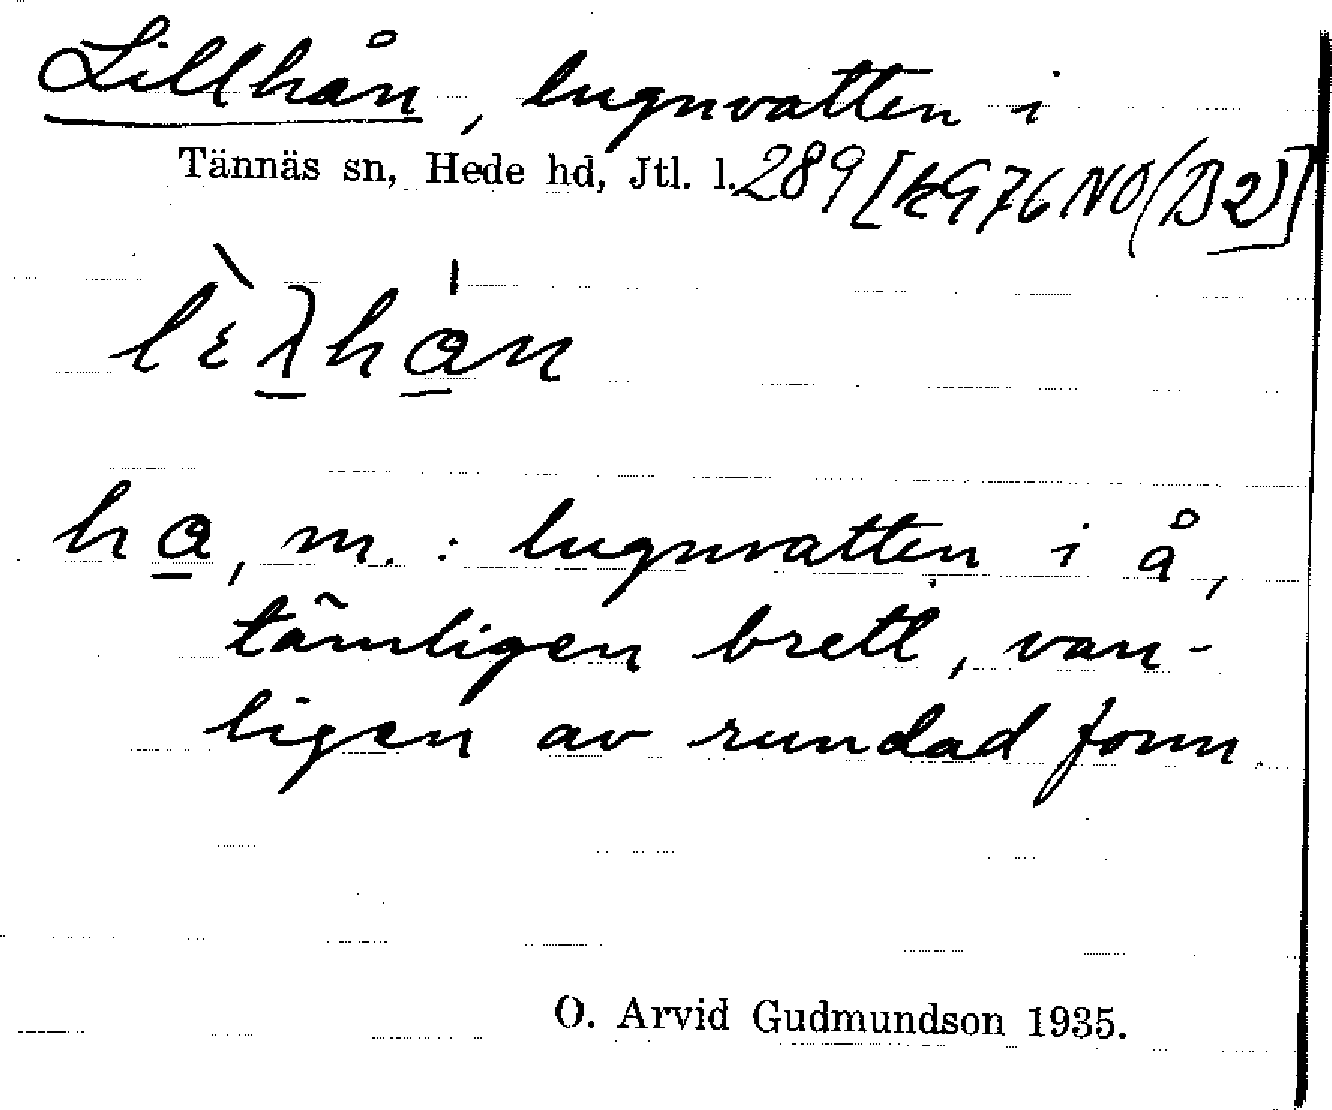 Lillhån, lugnvatten i
Tännäs sn, Hede hd, Jtl. l. 289 [KG76NO(B2)]
lɛ̀λ̲hå̲̍n
ha̲, m. : lugnvatten i å,
tämligen brett, van-
ligen av rundad form.
O. Arvid Gudmundson 1935.